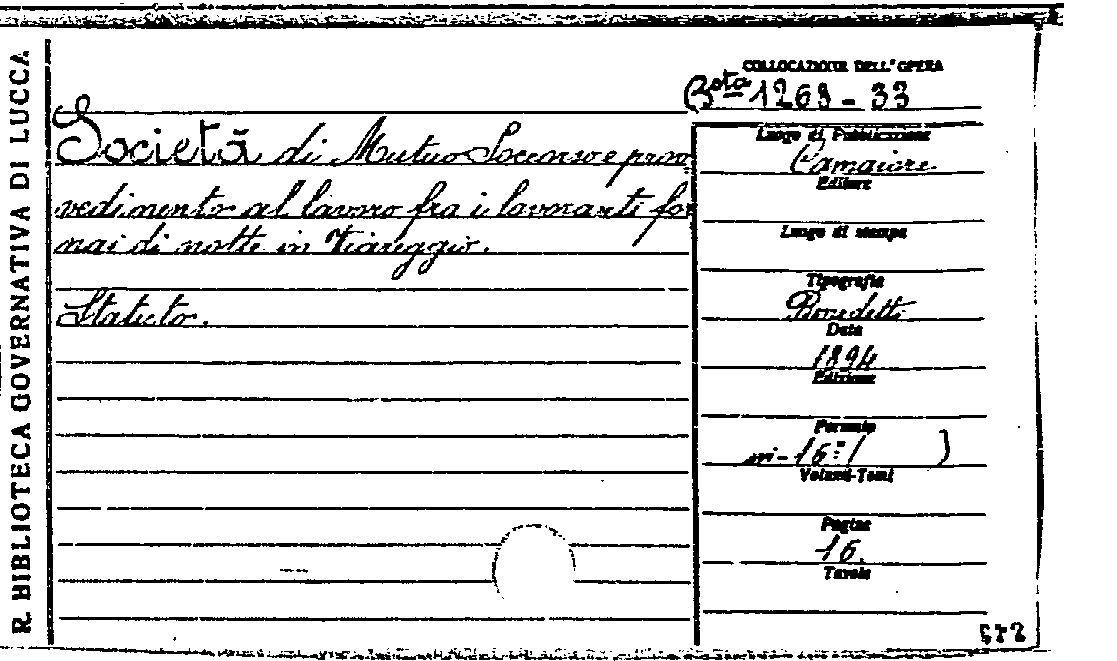 R. BIBLIOTECA GOVERNATIVA DI LUCCA
COLLOCAZIONE DELL'OPERA
Bsta 1269 - 33
Società di Mutuo Soccorso e prov
vedimento al lavoro fra i lavoranti for
nai di notte in Viareggio.
Statuto.
Luogo di Pubblicazione
Camaiore
Editore
Luogo di stampa
Tipografia
Benedetti
Data
1894
Edizione
Formato
in-16º (        )
Volumi-Tomi
Pagine
16.
Tavole